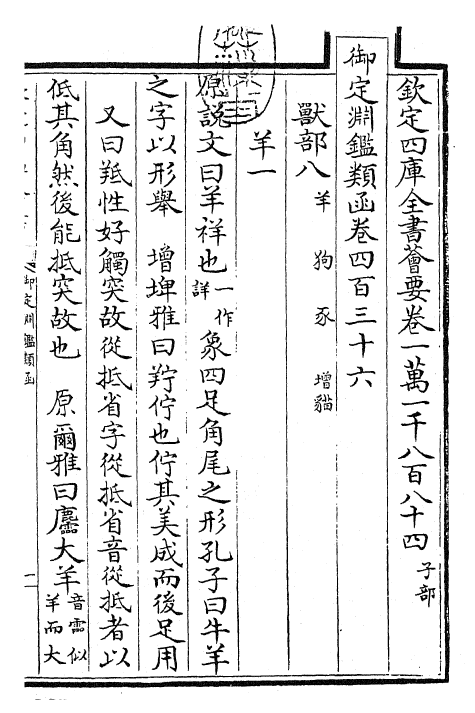 欽定四庫全書薈要卷一萬一千八百八十四 子部
御定淵鑑類函卷四百三十六
獸部八 羊 狗 豕 增貓
羊一
原說文曰羊祥也 一作詳 象四足角尾之形孔子曰牛羊
之字以形舉 增埤雅曰羜佇也佇其美成而後足用
又曰羝性好觸突故從抵省字從抵省音從抵者以
低其角然後能抵突故也 原爾雅曰麢大羊 音霝似羊而大
御定淵鑑類函
一